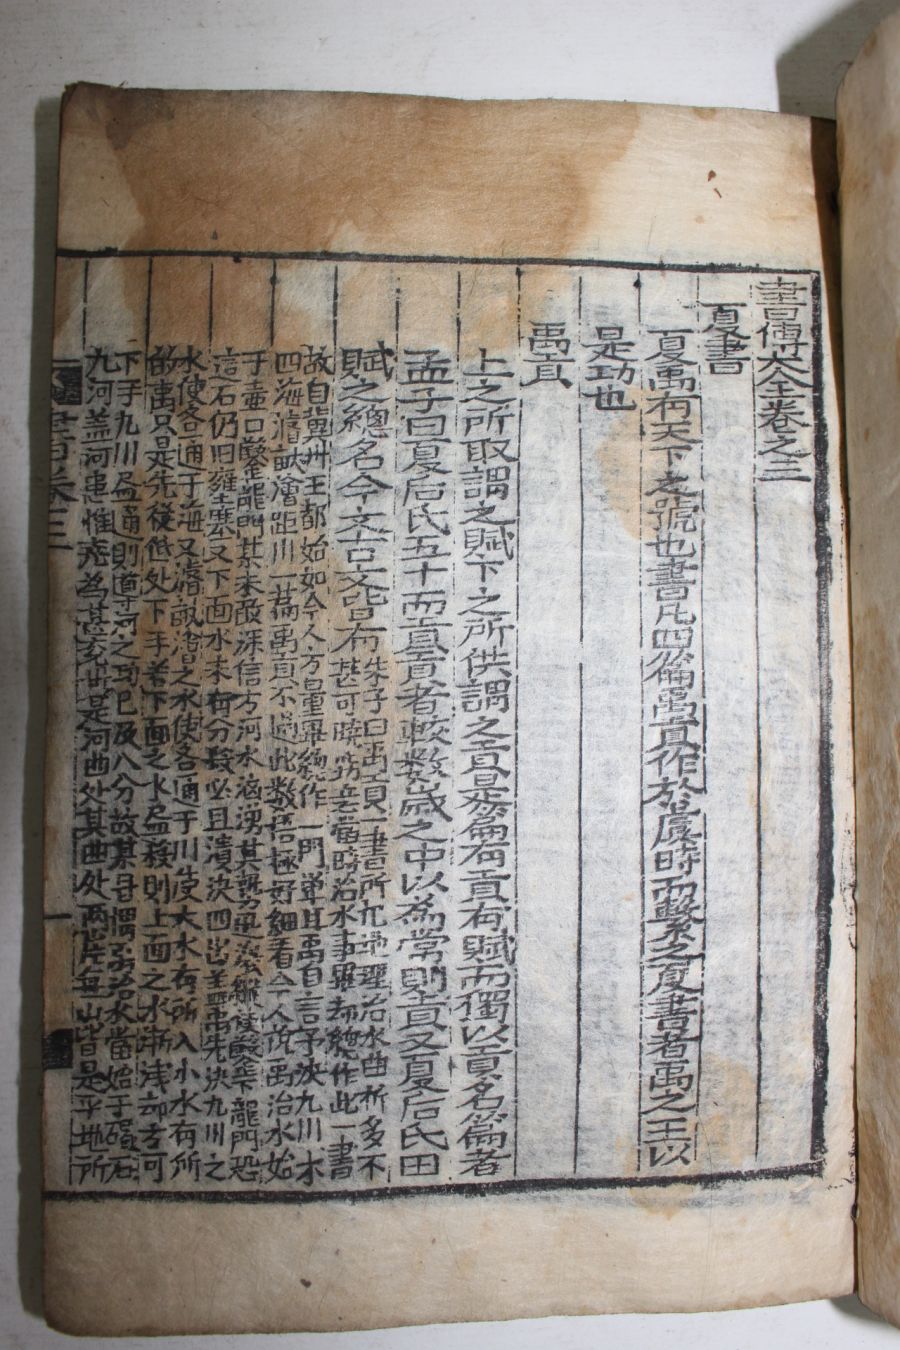 書傳大全卷之三
夏書
夏禹有天下之號也書凡四篇禹貢作於虞時而繫之夏書者禹之王以
是功也
禹貢
上之所取謂之賦下之所供謂之貢是篇有貢有賦而獨以貢名篇者
孟子曰夏后氏五十而貢貢者較數歲之中以爲常則貢又夏后氏田
賦之總名今文古文皆有
朱子曰禹貢一書所化地理治水曲折多不
甚可曉竊意當時治水事畢却總作此一書
故自冀州王都始如今人方量畢總作一門單耳禹自言予決九川
四海濬畎澮距川一篇禹貢不過此數語極好細看今人說禹治水始
于壺口鑿龍門某未敢深信方河水洶湧其勢
龍門恐
這石仍舊壅塞又下面水未有分殺必且潰決四出蓋禹先決九川之
水使各通于海又濬畎澮之水使各通于川使大水有所入小水有所
禹只是先從低處下手若下面之水盡殺則上面之水漸淺却去可
下手九川盡通則導河之功已及八分故某嘗謂禹治水當始于碣石
九河蓋河患惟兗爲甚兗是河曲處其曲處兩岸無山皆是平地所
書卷三
一